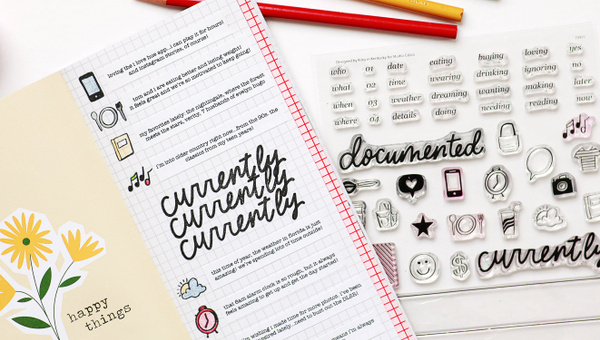 loving the i love hue app...i can play it for hours!
and instagram stories, of course!
tom and i are eating better and losing weight!
it feels great and we're so motivated to keep going!
my favorites lately: the nightingale, where the forest
meets the stars, verity, 7 husbands of evelyn hugo
i'm into older country right now...from the 90s. the
classics from my teen years!
currently
currently
currently
this time of year, the weather in florida is just
amazing! we're spending lots of time outside!
that 6am alarm clock is so rough, but it always
feels amazing to up and get the day started!
i'm wishing i made time for more photos. i've been
inspired lately...need to bust out the DSLR!
means i'm always
happy
things
who 01 date eating buying loving yes
what 02 time wearing drinking ignoring no
when 03 weather dreaming wanting making later
where 04 details doing needing reading now
documented
currently